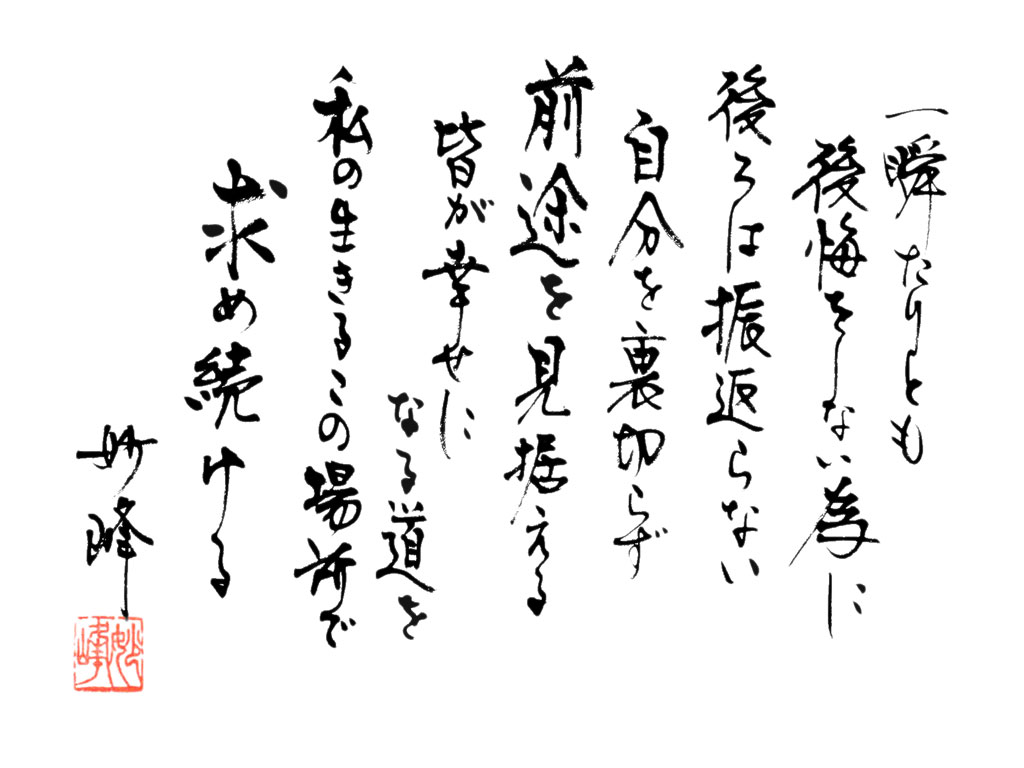 一瞬たりとも
後悔をしない為に
後ろは振返らない
自分を裏切らず
前途を見据える
皆が幸せに
なる道を
私の生きるこの場所で
求め続ける
妙峰
妙峰